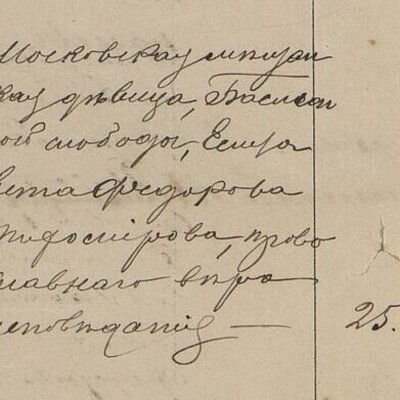 Московская мѣщан
кая дѣвица, Басман
ной слободы, Елиса
вета Федорова
право
славнаго вѣро
исповѣданія — 25.